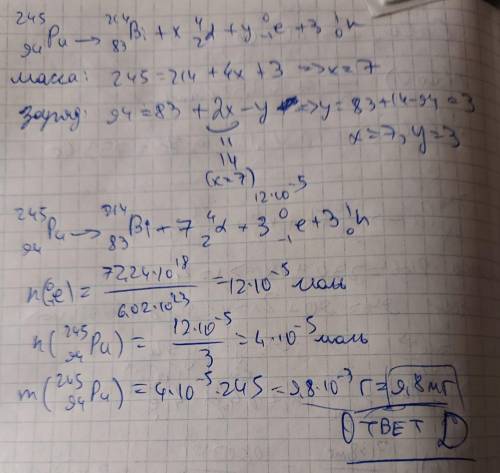 ²⁴⁵₉₄Pu → ²¹⁴₈₃Bi + x ⁴₂α + y ⁰₋₁e + 3 ¹₀n
масса: 245 = 214 + 4x + 3 => x = 7
заряд: 94 = 83 + 2x - y => y = 83 + 14 - 94 = 3
x = 7, y = 3
||
14
(x = 7)
12·10⁻⁵
²⁴⁵₉₄Pu → ²¹⁴₈₃Bi + 7 ⁴₂α + 3 ⁰₋₁e + 3 ¹₀n
n(⁰₋₁e) = 72,24·10¹⁸ / 6,02·10²³ = 12·10⁻⁵ моль
n(²⁴⁵₉₄Pu) = 12·10⁻⁵ / 3 = 4·10⁻⁵ моль
m(²⁴⁵₉₄Pu) = 4·10⁻⁵·245 = 9,8·10⁻³ г = 9,8 мг
ОТВЕТ: D